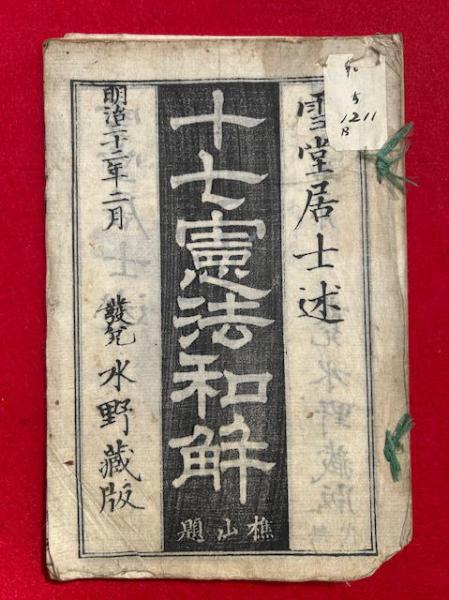 雪堂居士述
十七憲法和解
樵山題
明治二十二年二月
發兌 水野藏版
5
1211
B